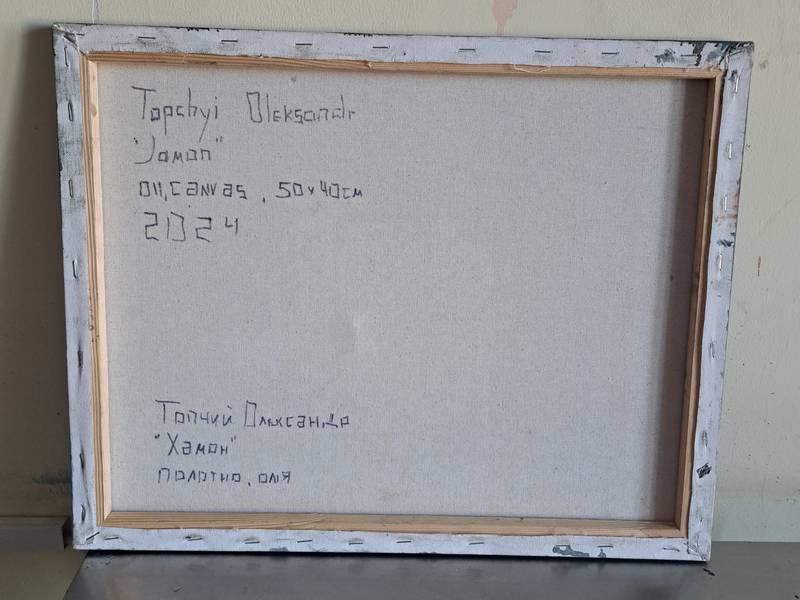 Topchyi Oleksandr
"Jamon"
oil, canvas, 50x40см
2024
Топчий Олександр
"Хамон"
полотно, олія